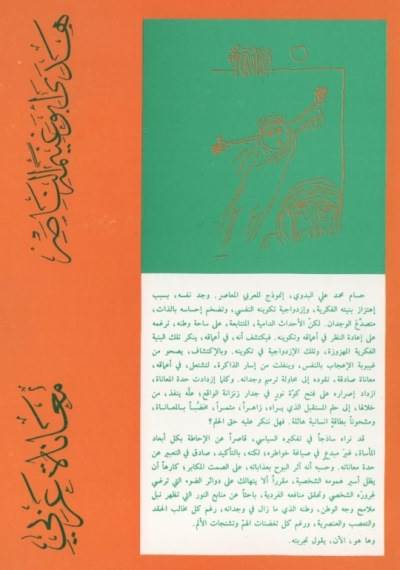 هدى أبو غنيمة الناصر
معاناة عربي
حسام محمد علي البدوي، إنموذج للعربي المعاصر. وجد نفسه، بسبب
إهتزاز بنيته الفكرية، وإزدواجية تكوينه النفسي، وتضخم إحساسه بالذات،
متصدّع الوجدان. لكنّ الأحداث الدامية، المتتابعة، على ساحة وطنه، ترغمه
على إعادة النظر في أعماقه وتكوينه. فيكتشف أنه، في أعماقه، ينكر تلك البنية
الفكرية المهزوزة، وتلك الإزدواجية في تكوينه. وبالإكتشاف، يصحو من
غيبوبة الإعجاب بالنفس، وينفلت من إسار الذاكرة، لتشتعل، في أعماقه،
معاناة صادقة، تقوده إلى محاولة ترميم وجدانه. وكلما إزدادت حدة المعاناة،
ازداد إصراره على فتح كوّة نور في جدار زنزانة الواقع، علّه ينفذ، من
خلالها، إلى حلم المستقبل الذي يراه، زاهراً، منتصراً، مخضّباً بالمعاناة،
ومشحوناً بطاقة إنسانية هائلة. فهل ننكر عليه حق الحلم؟
قد نراه ساذجاً في تفكيره السياسي، قاصراً عن الإحاطة بكل أبعاد
المأساة، غير مبدع في صياغة خواطره، لكنه، بالتأكيد، صادق في التعبير عن
حدة معاناته. وحسبه أنه آثر البوح بعذاباته، على الصمت المكابر؛ كارهاً أن
يظل أسير همومه الشخصية، مقرراً ألا يتهالك على دوائر الضوء التي ترضي
غروره الشخصي وتحقق منافعه الفردية، باحثاً عن منابع النور التي تظهر نبل
ملامح وجه الوطن، وطنه الذي ما زال في وجدانه، رغم كل مخالب الحقد
والتعصب والعنصرية، ورغم كل تغضنات الهمّ وتشنجات الألم.
وها هو، الآن، يقول تجربته.